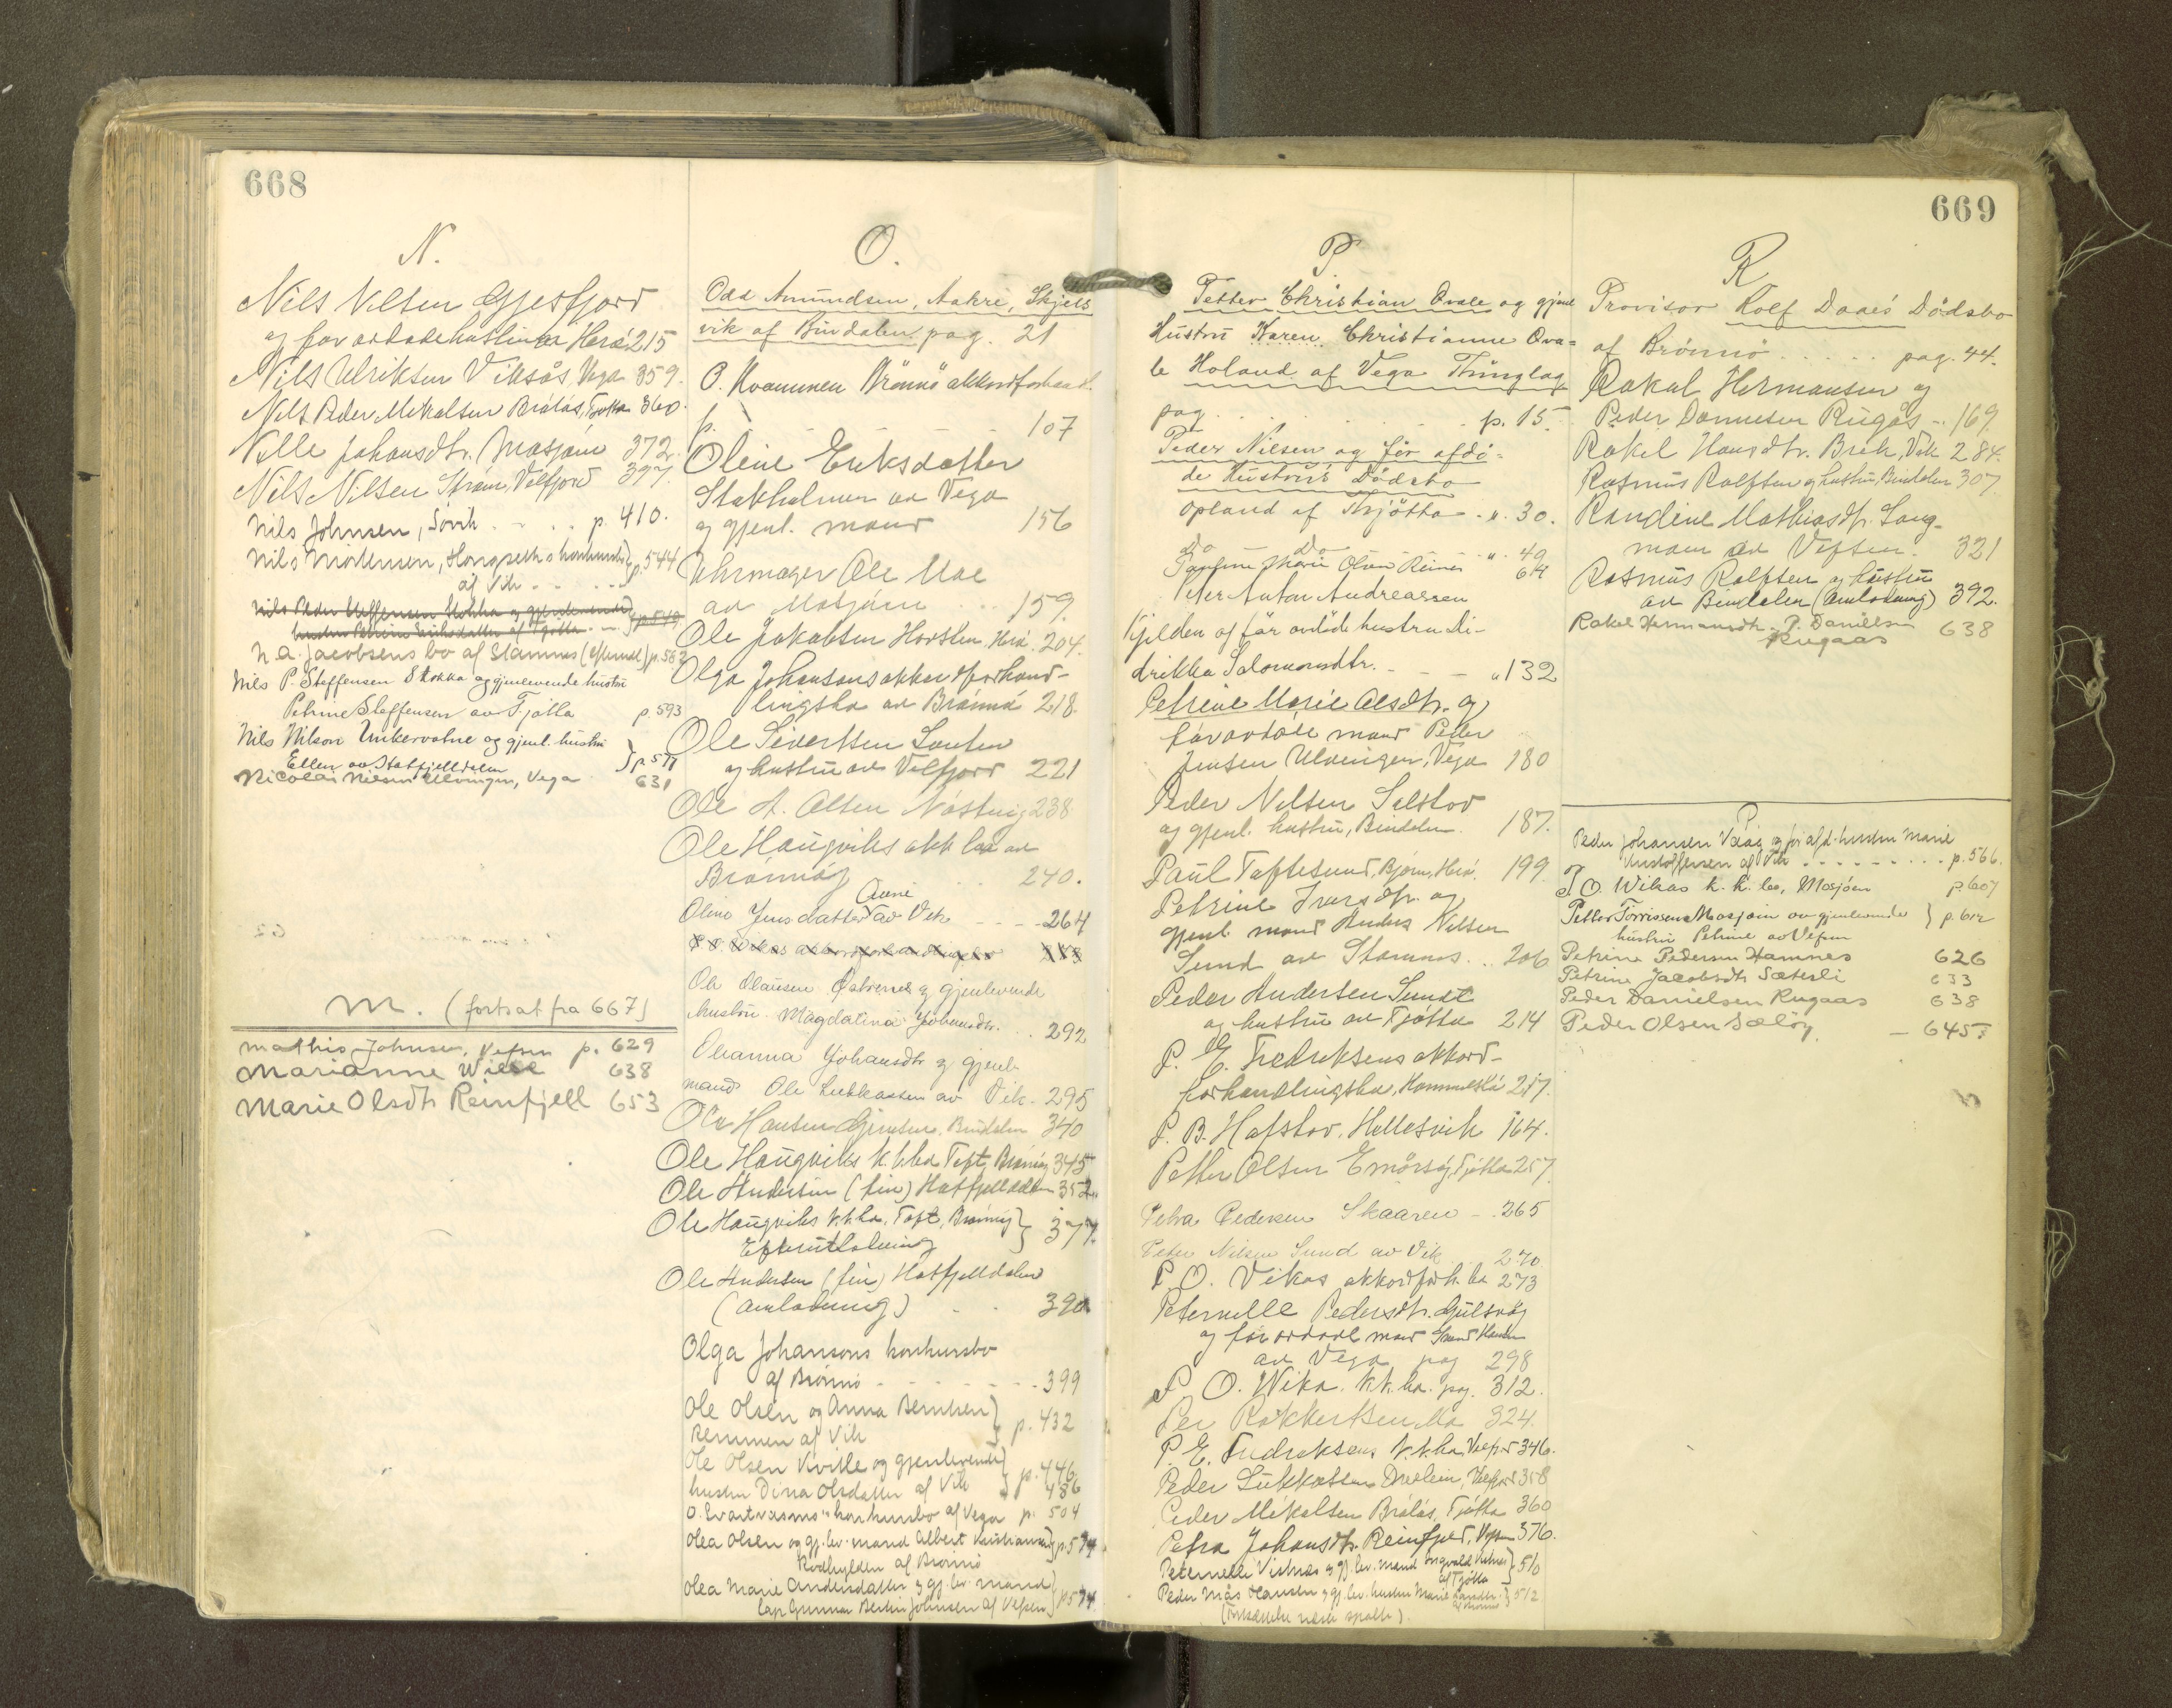 668
N.
Nils Nilsen Gjesfjord
og før avdøde hustru av Herö 215
Nils Ulriksen Viksås, Vega 359.
Nils Peder Mikalsen Brålås, Tjøtta 360.
Nille Johansdtr. Mosjøen 372.
Nils Nilsen Strøm, Velfjord 397.
Nils Johnsen, Sövik - - . . p. 410.
Nils Mortensen, konkursbo p. 544
af Vik - - -
Nils Peder Steffensen Stokka og gjenlevende
hustru af Tjøtta
N. A. Jacobsens bo af Stamnes p. 562
Nils P. Steffensen Stokka og gjenlevende hustru
Petrine Steffensen av Tjøtta p. 593
Nils Nilson Unkervatne og gjenl. hustru
Ellen av Hatfjelldalen p. 577
Nicolai Nilsen Ulvingen, Vega 631
M. (fortsat fra 667)
Mathis Johnsen, Vefsn p. 629
Marianne Wiese 638
Marie Olsdtr Reinfjell 653
O.
Odd Amundsen, Aakre, Skjels
vik af Bindalen pag. 21
O. Kvammen Brönnö akkordforhandl.
p. - - - - 107
Oline Eriksdatter
Stakholmen av Vega
og gjenl. mand 156
Uhrmager Ole Moe
av Mosjøen . . . 159.
Ole Jakobsen Horsten, Herö. 204.
Olga Johansons akkordforhand-
lingsbo av Brönnö 218.
Ole Sivertsen
og hustru av Velfjord 221
Ole A. Olsen Næstvig 238
Ole Haugviks akk. bo av
Brönnöy . . . 240.
Oline Jensdatter Aune av Vik - - - 264
P. O. Wikas akkordforhandlingsbo
Ole Olausen og gjenlevende
hustru Magdalina Johansdtr. . . 292
Oleanna Johansdtr og gjenl.
mand Ole Lukkassen av Vik. 295
Ole Hansen Bindalen 340
Ole Haugviks k.k.bo Toft, Brönnöy 345
Ole Andersen (fin) Hatfjelldalen 352
Ole Haugviks k.k.bo, Toft, Brönnöy 377.
Efterutlodning
Ole Andersen (fin) Hatfjelldalen
(omlodning) - - 390.
Olga Johansons konkursbo
af Brönnö - - - - - - - 399
Ole Olsen og Anna Berntsen
Remmen af Vik p. 432
Ole Olsen Kvitle og gjenlevende
hustru Dina Olsdatter af Vik p. 446, 486
O. konkursbo af Vega p. 504
Olea Olsen og gj.lev. mand Albert Kristiansen p. 574
af Brönnö
Olea Marie Andersdatter og gj.lev. mand
Gunnar Johnsen af Vefsen p. 574
669
P
Petter Christian Qvale og gjenl
Hustru Karen Christianne Qva=
le Holand af Vega Thinglag
pag. . . . . . . p. 15.
Peder Nielsen og för afdö=
de Hustru's Dödsbo
Opland af Thjötta . „. 30.
Do Do - „. 49
Marie Reines 614
Peter Anton Andreassen
Kjelden og før avdöde hustru Di-
drikka Salomonsdtr. - - - „ 132
Petrine Marie Olsdtr. og
før avdøde mand Peder
Jensen Ulvingen, Vega 180
Peder Nilsen Selstov
og gjenl. hustru, Bindalen. 187.
Paul Toftesund, Bjørn, Herö. 199.
Petrine Iversdtr. og
gjenl. mand Anders Nilsen
Sund av Stamnes. . . 206
Peder Andersen Sundt
og hustru av Tjøtta 214
P. E. Fredriksens akkord-
forhandlingsbo, 217.
P. B. Hafstov, Hellesvik 164.
Petter Olsen Tjøtta 257.
Petra Pedersen Skaaren - . 265
Peder Nilsen Sund av Vik 270
P. O. Vikas akkordforh. bo 273
Peternelle Pedersdtr. Gulsvåg
og før avdøde mand
av Vega pag 298
P. O. Wika. k.k.bo. pag. 312.
Per 324.
P. E. Fredriksens k.k.bo, 346.
Peder Lukkassen 358
Peder Mikalsen Brålås, Tjøtta 360
Petra Johansdtr. Reinfjeld, Vefsn 376.
Peternelle Vistnes og gj.lev. mand Ingvald Vistnes 510
af Tjøtta
Peder Mås Hansen og gj.lev. hustru Marie 512
(Fortsættelse næste spalte).
R
Provisor Rolf Daaes Dödsbo
af Brönnö . . . . . pag. 44.
Rakel Hermansen og
Peder Danielsen Rugås - . 169.
Rakel Hansdtr. Brek, Vik 284.
Rasmus Rolfsen og hustru, Bindalen 307
Randine Mathiasdtr. Lang-
moen av Vefsen. 321
Rasmus Rolfsen og hustru
av Bindalen (omlodning) 392.
Rakel Hermansdtr. P. Danielsen
Rugaas 638
P
Peder Johansen Vaag og før afd. hustru Marie
Kristoffersen af Vik - - - - - - - p. 566.
P. O. Wikas k. k. bo, Mosjöen p. 607
Petter Torrissen Mosjøen og gjenlevende p. 612
hustru Petrine av Vefsen
Petrine Pedersen Hamnes 626
Petrine Jacobsdtr Sæterli 633
Peder Danielsen Rugaas 638
Peder Olsen Sæløy — 645